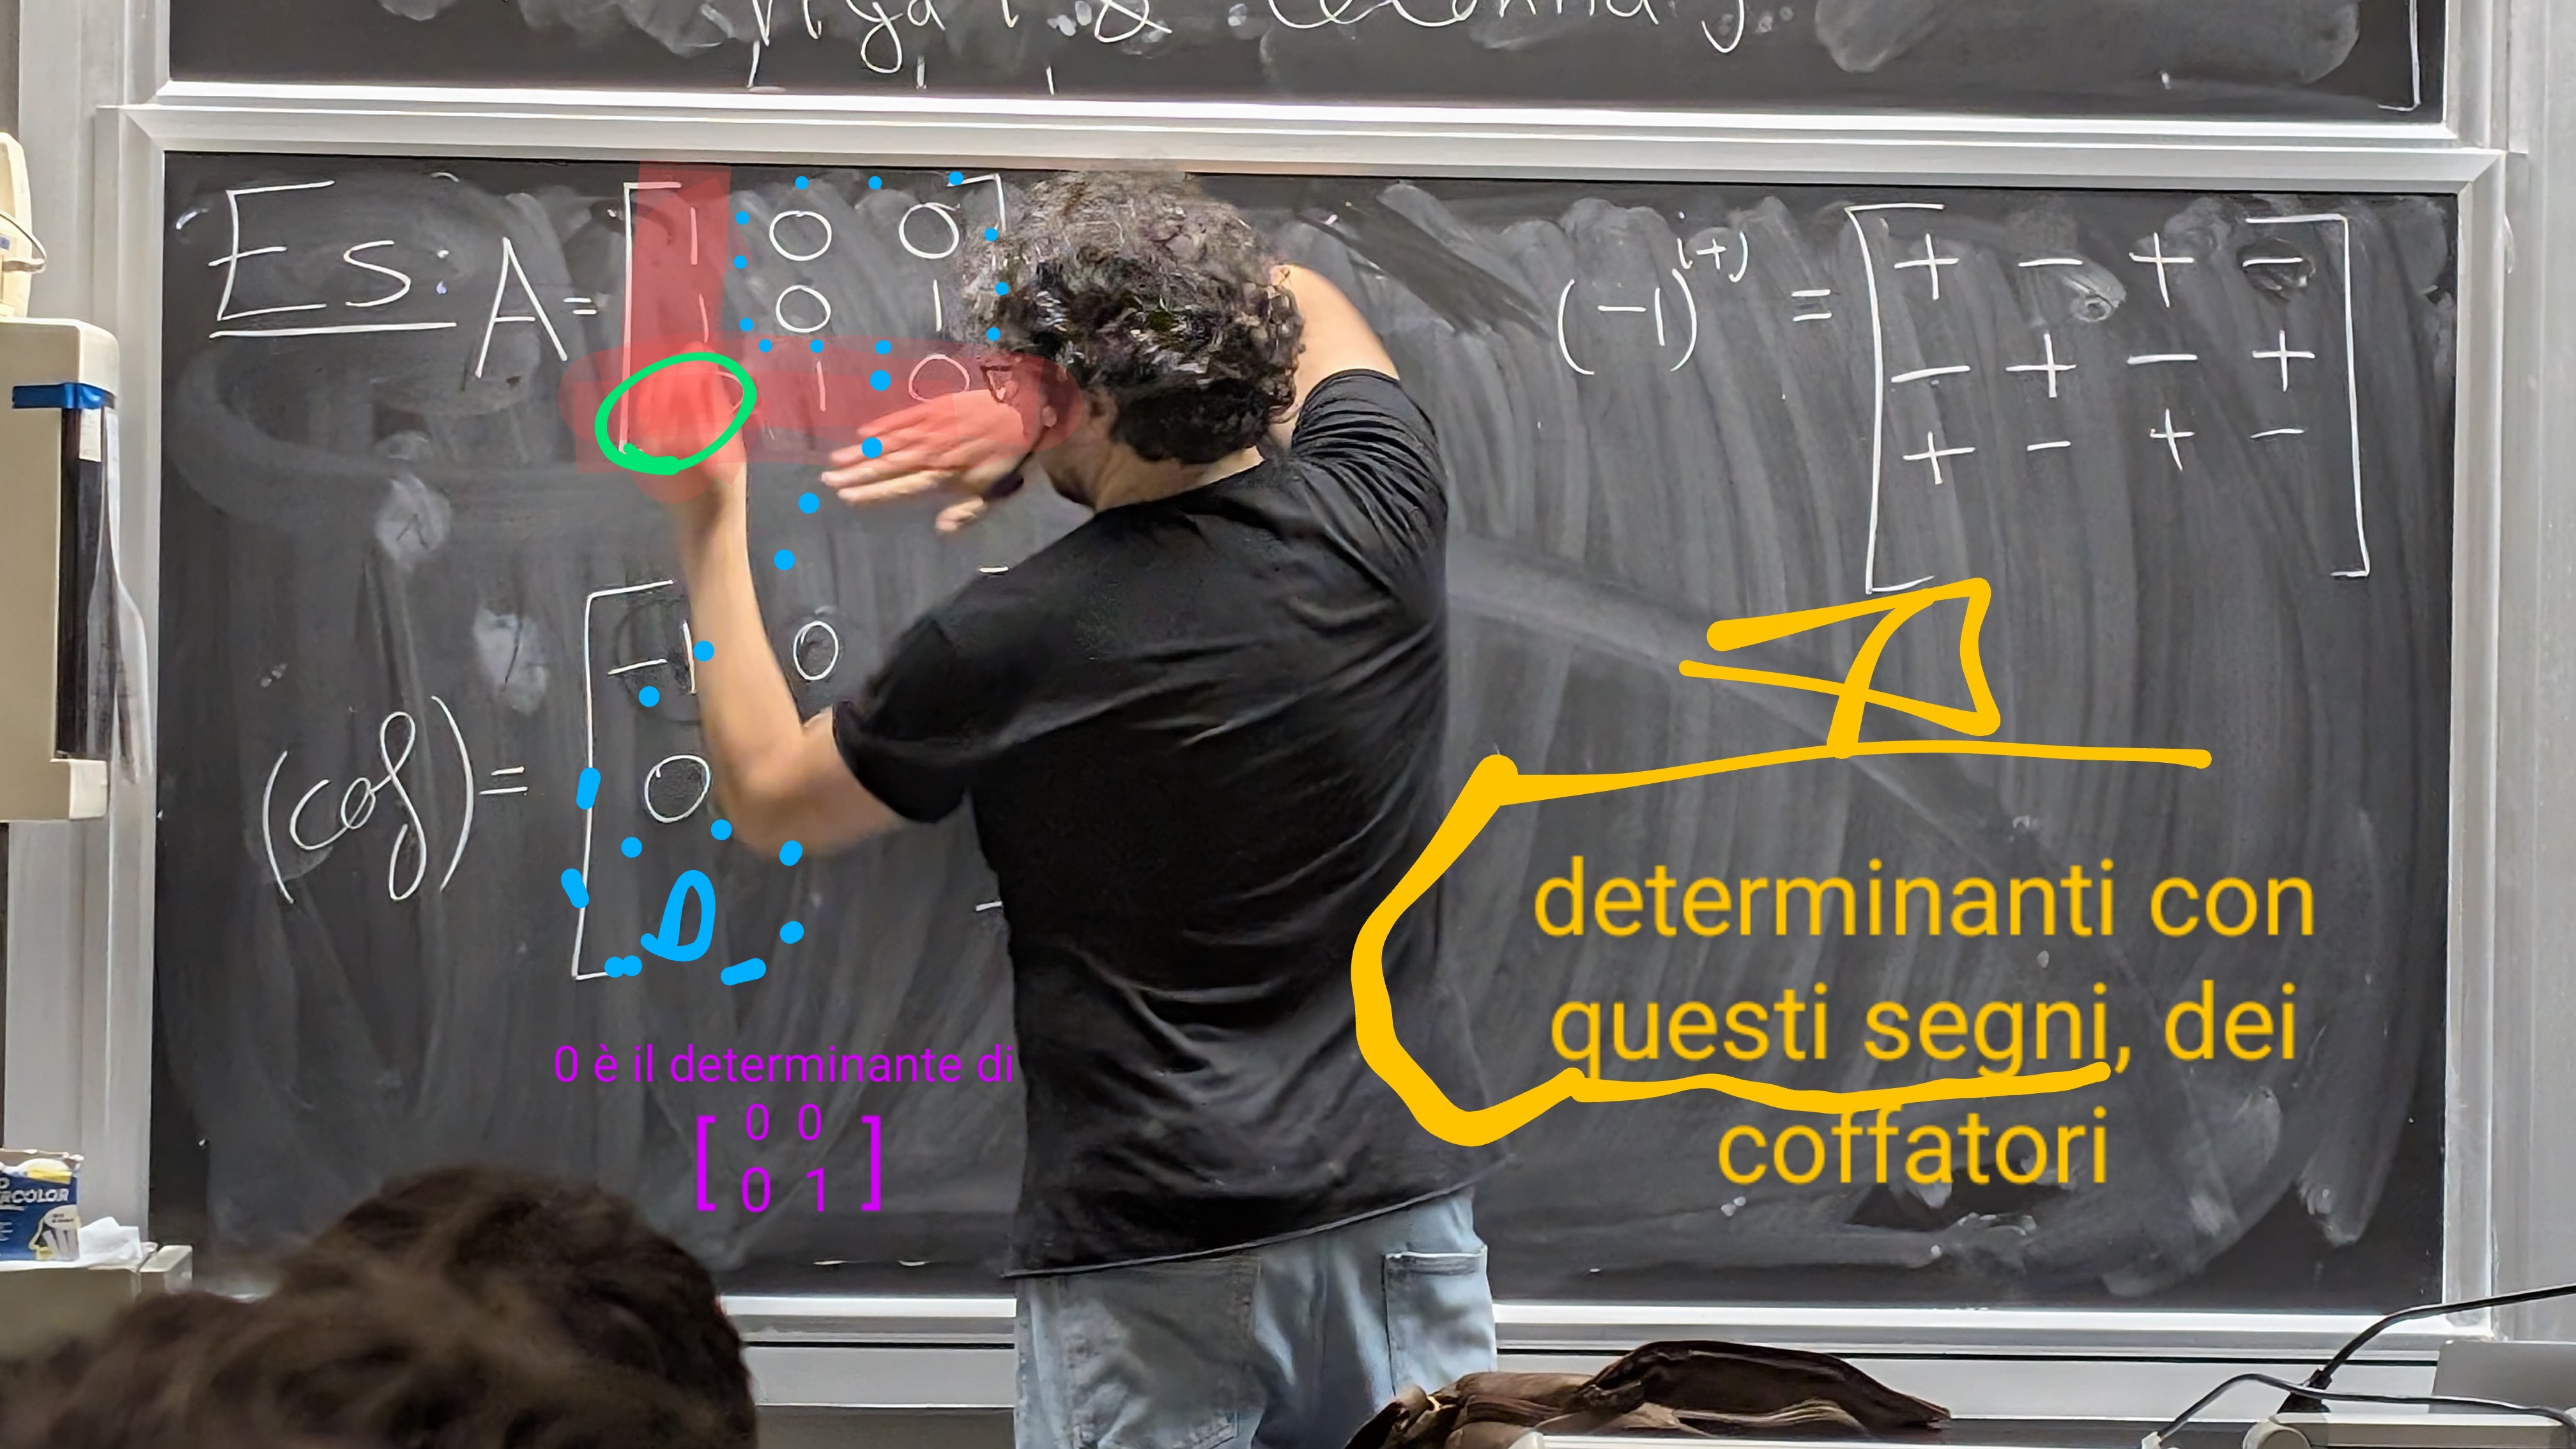 riga i & colonna j
Es: A = [ 1 0 0
1 0 1
1 0 ]
(-1)^(i+j) = [ + - + -
- + - +
+ - + - ]
(cof) = [ -1 0
0
0
0 è il determinante di
[ 0 0
0 1 ]
determinanti con
questi segni, dei
coffatori
RCOLOR